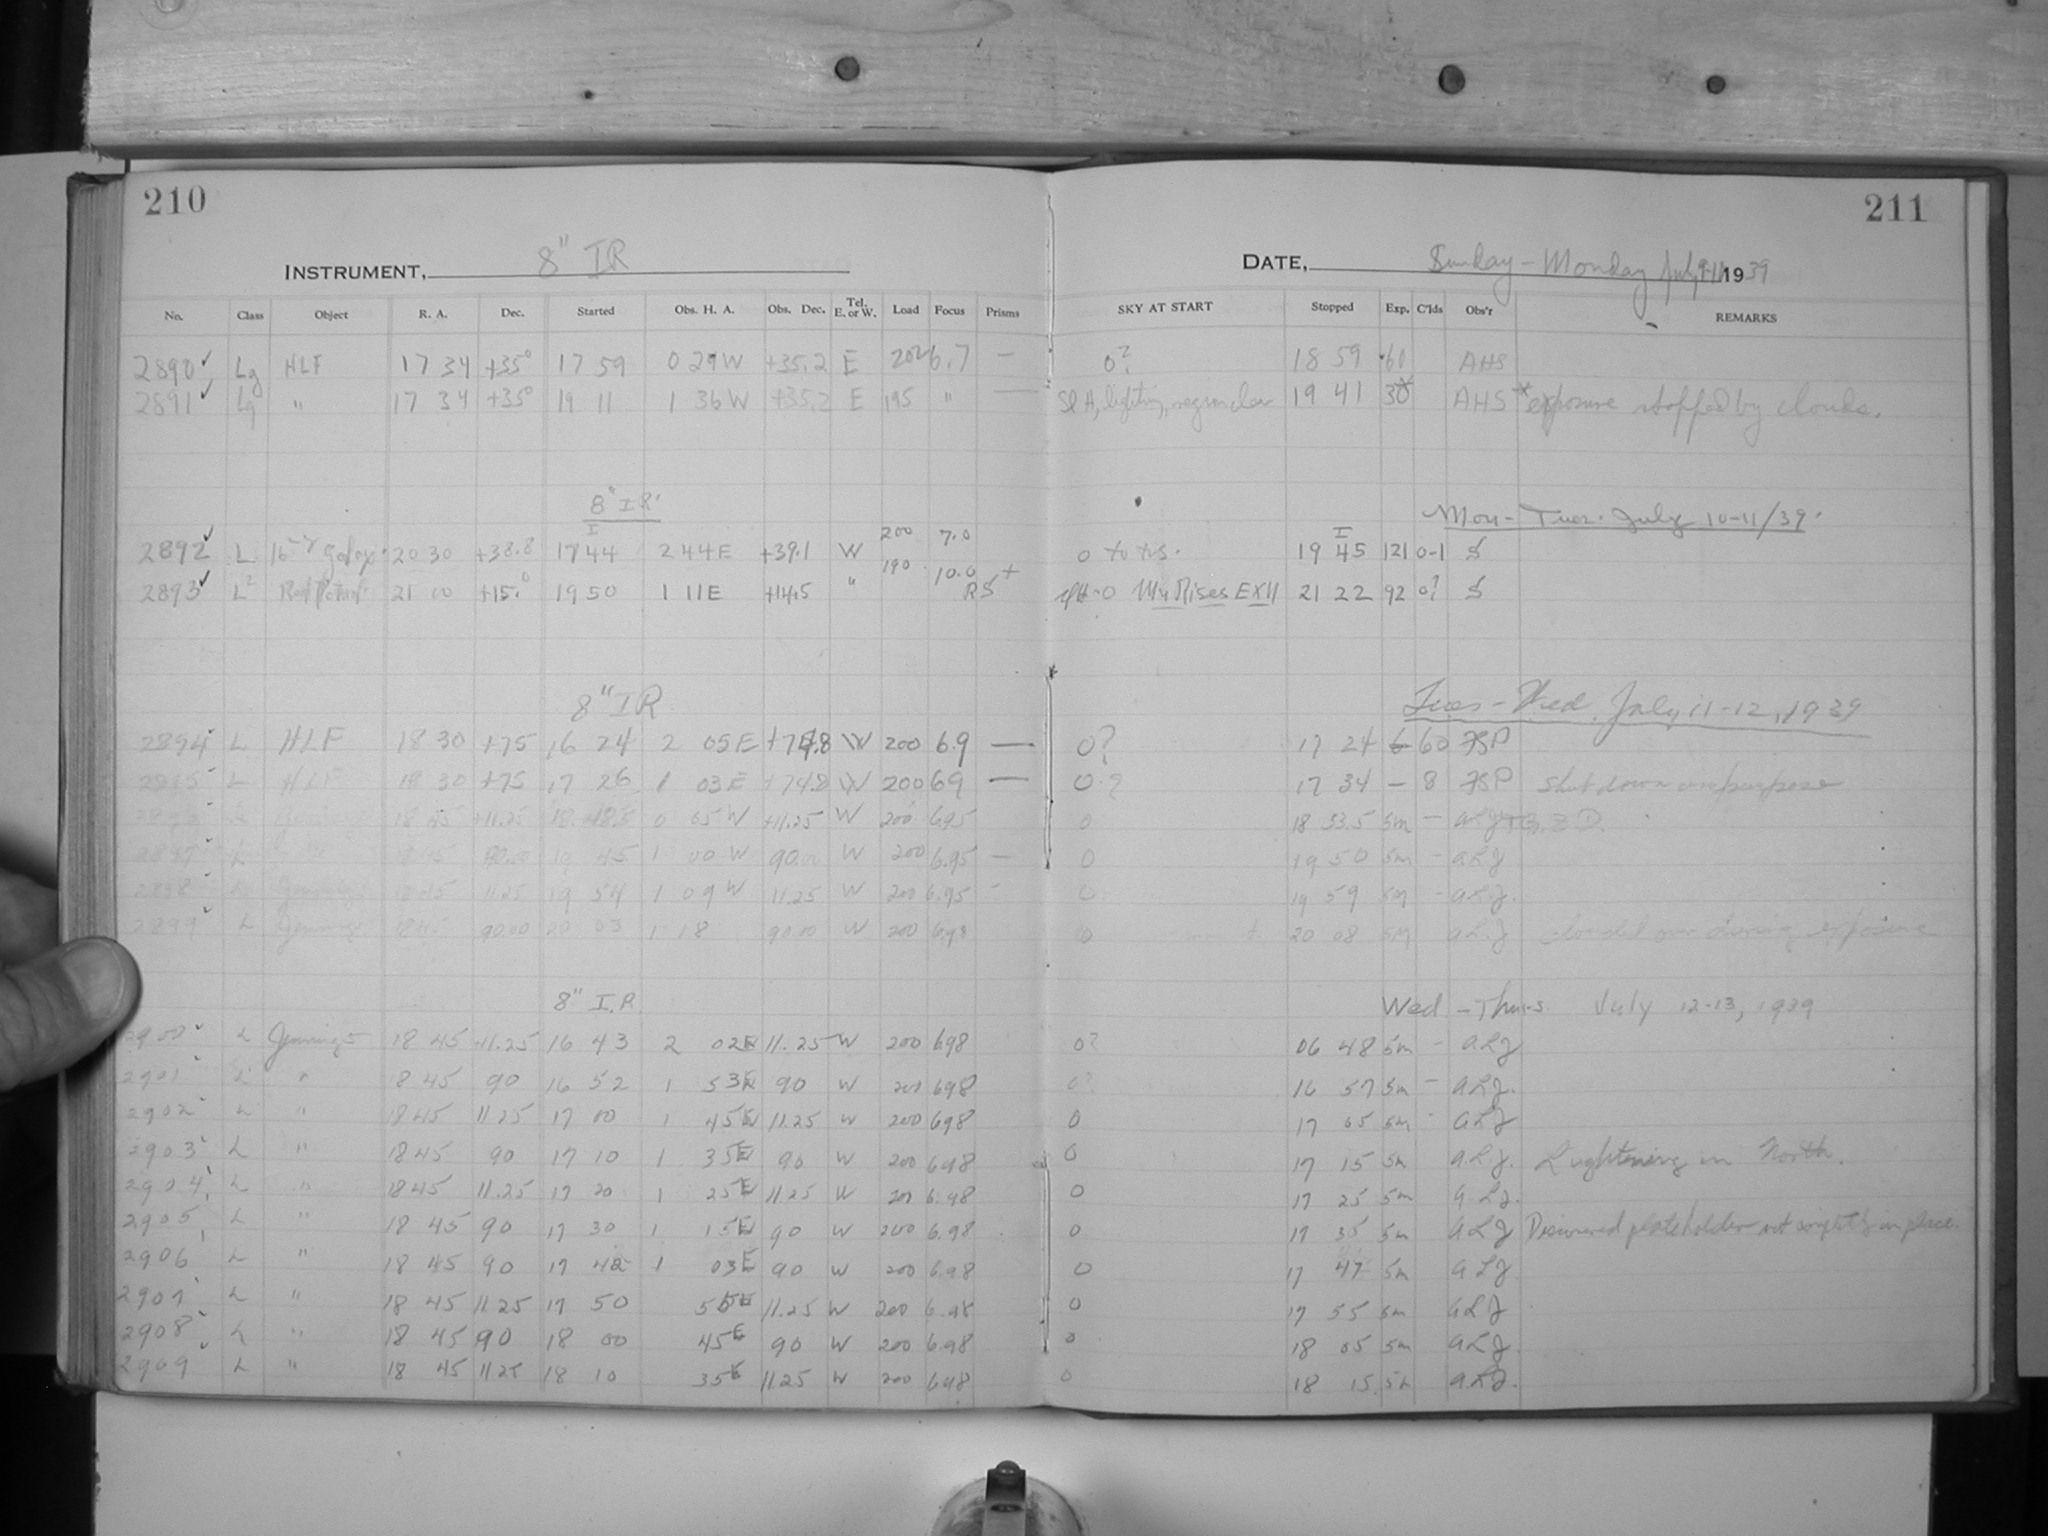 210
211
INSTRUMENT, 8" IR
DATE, Sunday - Monday July 9-11 1939
No. Class Object R. A. Dec. Started Obs. H. A. Obs. Dec. Tel. E. or W. Load Focus Prisms SKY AT START Stopped Exp. C'lds Obs'r REMARKS
2890 Lg HLF 17 34 +35° 17 59 0 29 W +35.2 E 202 6.7 — 0? 18 59 60 AHS
2891 Lg " 17 34 +35° 19 11 1 36 W +35.2 E 195 " — Sl H, lightng, region clear 19 41 30* AHS *exposure stopped by clouds.
8" IR Mon - Tues. July 10-11/39.
2892 L 20 30 +38.8 17 44 2 44 E +39.1 W 200 7.0 0 to 19 45 121 0-1
2893 21 00 +15.° 19 50 1 11 E +14.5 " 190 10.0 RS + Rises EXII 21 22 92 0?
8" IR Tues - Wed. July 11-12, 1939
2894 L HLF 18 30 +75 16 24 2 05 E +74.8 W 200 6.9 — 0? 17 24 60 FSP
2895 L HLF 18 30 +75 17 26 1 03 E +74.8 W 200 69 — 0? 17 34 — 8 FSP Shut down on purpose
18 45 +11.25 18 48.5 0 05 W +11.25 W 200 6.95 0 18 53.5 5m — ALJ
2897 L 90.00 19 45 1 00 W 90.00 W 200 6.95 — 0 19 50 5m - ALJ
2898 L Jennings 18 45 11.25 19 54 1 09 W 11.25 W 200 6.95 - 0 19 59 5m - ALJ.
2899 L Jennings 18 45 90.00 20 03 1 18 90.00 W 200 6.98 0 20 08 5M ALJ clouded over during exposure
8" I.R. Wed - Thurs. July 12-13, 1939
2900 L Jennings 18 45 +11.25 16 43 2 02 E 11.25 W 200 698 0? 06 48 5m - ALJ
2901 L " 18 45 90 16 52 1 53 E 90 W 200 698 0? 16 57 5m - ALJ.
2902 L " 18 45 11 25 17 00 1 45 E 11.25 W 200 698 0 17 05 5m - ALJ
2903 L " 18 45 90 17 10 1 35 E 90 W 200 698 0 17 15 5m ALJ. Lughtening in North.
2904 L " 18 45 11.25 17 20 1 25 E 11 25 W 200 6.98 0 17 25 5m ALJ.
2905 L " 18 45 90 17 30 1 15 E 90 W 200 6.98 0 17 35 5m ALJ Discovered plateholder not in place.
2906 L " 18 45 90 17 42 1 03 E 90 W 200 6.98 0 17 47 5m ALJ
2907 L " 18 45 11 25 17 50 55 E 11.25 W 200 6.98 0 17 55 5m ALJ
2908 L " 18 45 90 18 00 45 E 90 W 200 6.98 0 18 05 5m ALJ
2909 L " 18 45 11 25 18 10 35 E 11 25 W 200 698 0 18 15 5m ALJ.